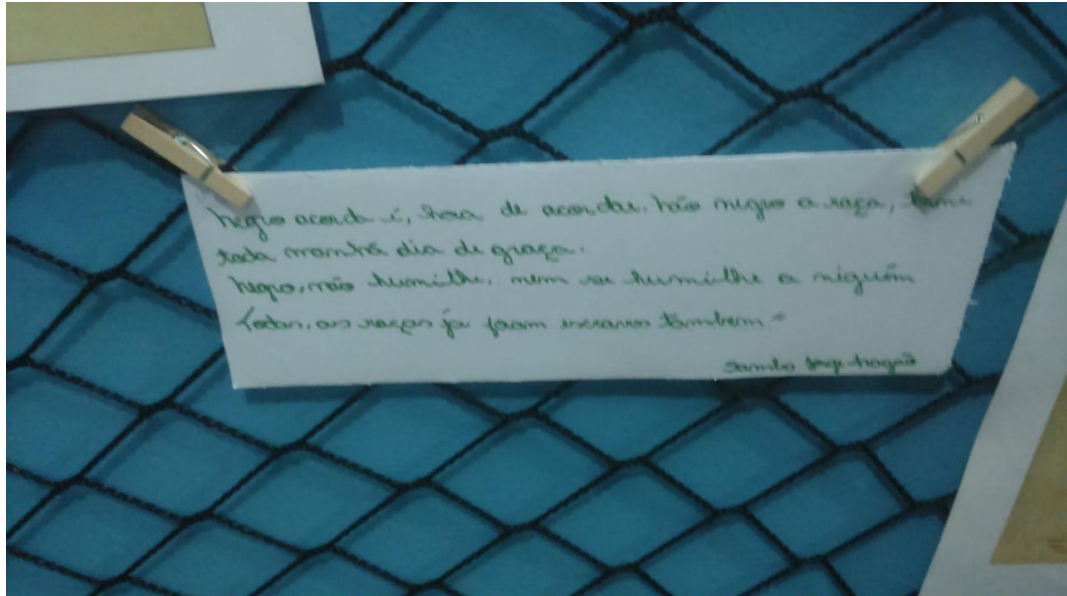 Negro acorda é, hora de acordar. Não negue a raça, torne
toda manhã dia de graça.
Negro, não humilhe, nem se humilhe a niguém
Todas, as raças ja foram escravas também"
Samba Jorge Aragão